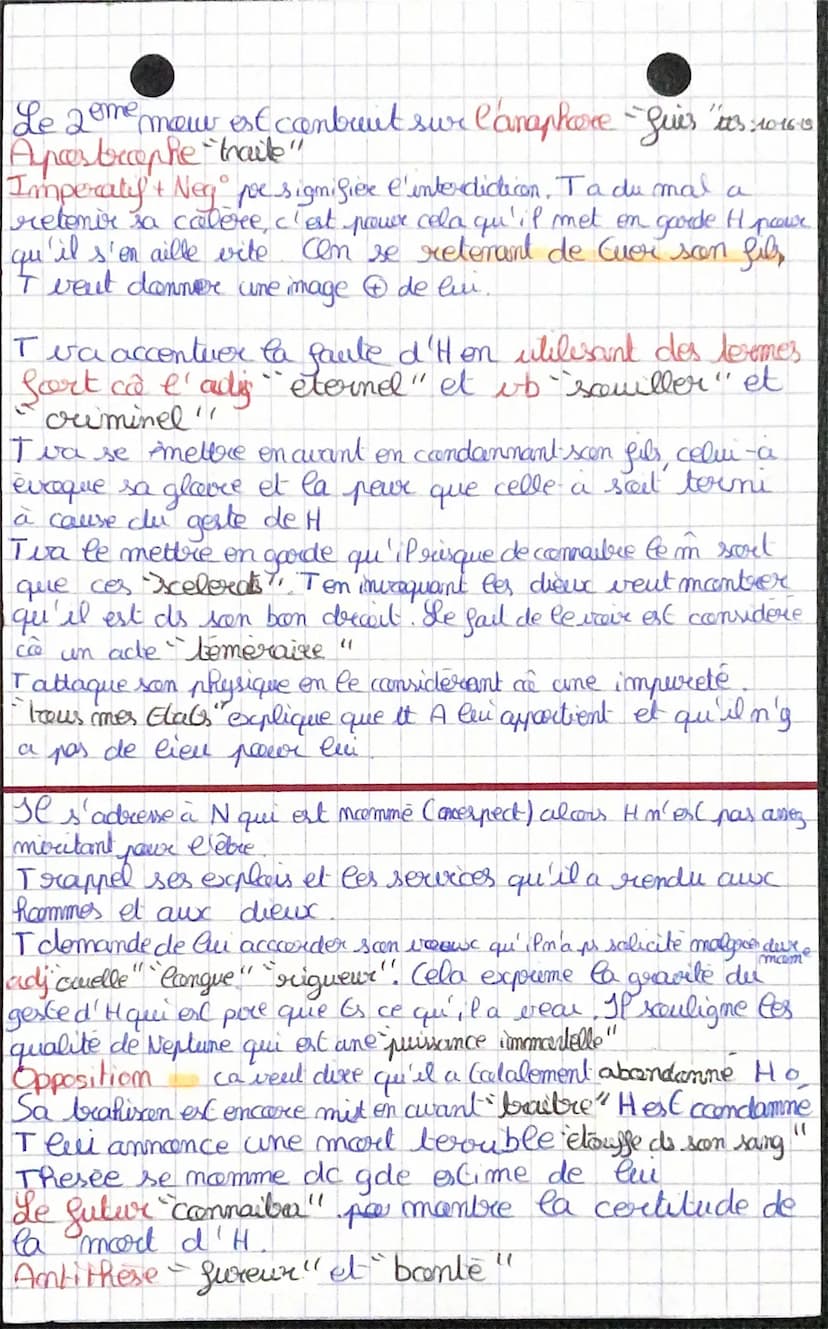 Le 2eme mouv est contruit sur l'anaphore "fuis" vers: 1016-19
Apostrophe "traite"
Imperatif + Neg° pr signifier l'interdiction. T a du mal a
retenir sa colère, c'est pour cela qu'il met en garde H pour
qu'il s'en aille vite. En se retenant de tuer son fils,
T veut donner une image ⊕ de lui.
T va accentuer la faute d'H en utilisant des termes
fort cô l'adj "éternel" et vb "souiller" et
"criminel"
T va se mettre en avant en condamnant son fils, celui-ci
évoque sa gloire et la peur que celle-ci soit terni
à cause du geste de H
T va le mettre en garde qu'il risque de connaitre le m̂ sort
que ces "scelerats". T en invoquant les dieux veut montrer
qu'il est ds son bon droit. Le fait de le voir est considéré
cô un acte "témeraire"
T attaque son physique en le considérant cô une impureté.
"tous mes Etats" explique que tt A lui appartient et qu'il n'y
a pas de lieu pour lui
Il s'adresse à N qui est nommé (respect) alors H n'est pas assez
méritant pour l'être.
T rappel ses exploits et les services qu'il a rendu aux
hommes et aux dieux.
T demande de lui accorder son voeux qu'il n'a ps solicité malgré dure
moment
adj "cruelle" "longue" "rigueur". Cela exprime la gravité du
geste d'H qui est pire que ts ce qu'il a vecu. Il souligne les
qualité de Neptune qui est une "puissance immortelle"
Opposition ca veut dire qu'il a totalement abandonné H.
Sa trahison est encore mit en avant "traitre" H est condamné
T lui annonce une mort terrible "étouffe ds son sang"
Thésée se nomme dc gde estime de lui
Le futur "connaitra" montre la certitude de
la mort d'H.
Antithèse - fureur" et "bonté"